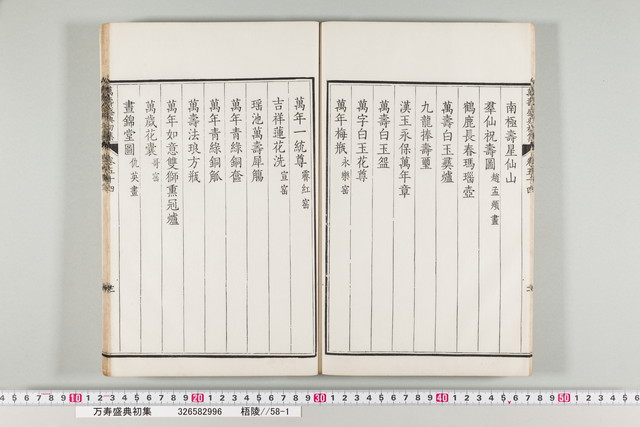 南極壽星仙山
羣仙祝壽圖 趙孟頫畫
鶴鹿長春瑪瑙壺
萬壽白玉奠爐
九龍捧壽璽
漢玉永保萬年章
萬壽白玉盌
萬字白玉花尊
萬年梅瓶 永樂窑
萬年一統尊 霽紅窑
吉祥蓮花洗 宣窑
瑶池萬壽犀觴
萬年青綠銅奩
萬年青綠銅觚
萬壽法琅方瓶
萬年如意雙獅熏冠爐
萬歲花囊 哥窑
晝錦堂圖 仇英畫
10 20 30 40 50
万寿盛典初集 326582996 梧陵//58-1